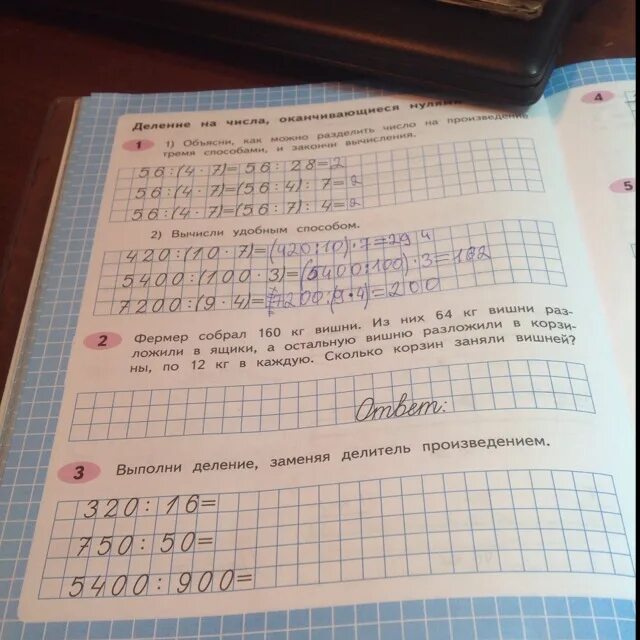 Деление на числа, оканчивающиеся нулями
4
1
1) Объясни, как можно разделить число на произведение
тремя способами, и закончи вычисления.
56:(4·7)=56:28=2
56:(4·7)=(56:4):7=2
56:(4·7)=(56:7):4=2
5
2) Вычисли удобным способом.
420:(10·7)=(420:10)·7=294
5400:(100·3)=(5400:100)·3=162
7200:(9·4)=7200:(9·4)=200
2
Фермер собрал 160 кг вишни. Из них 64 кг вишни раз-
ложили в ящики, а остальную вишню разложили в корзи-
ны, по 12 кг в каждую. Сколько корзин заняли вишней?
Ответ:
3
Выполни деление, заменяя делитель произведением.
320:16=
750:50=
5400:900=